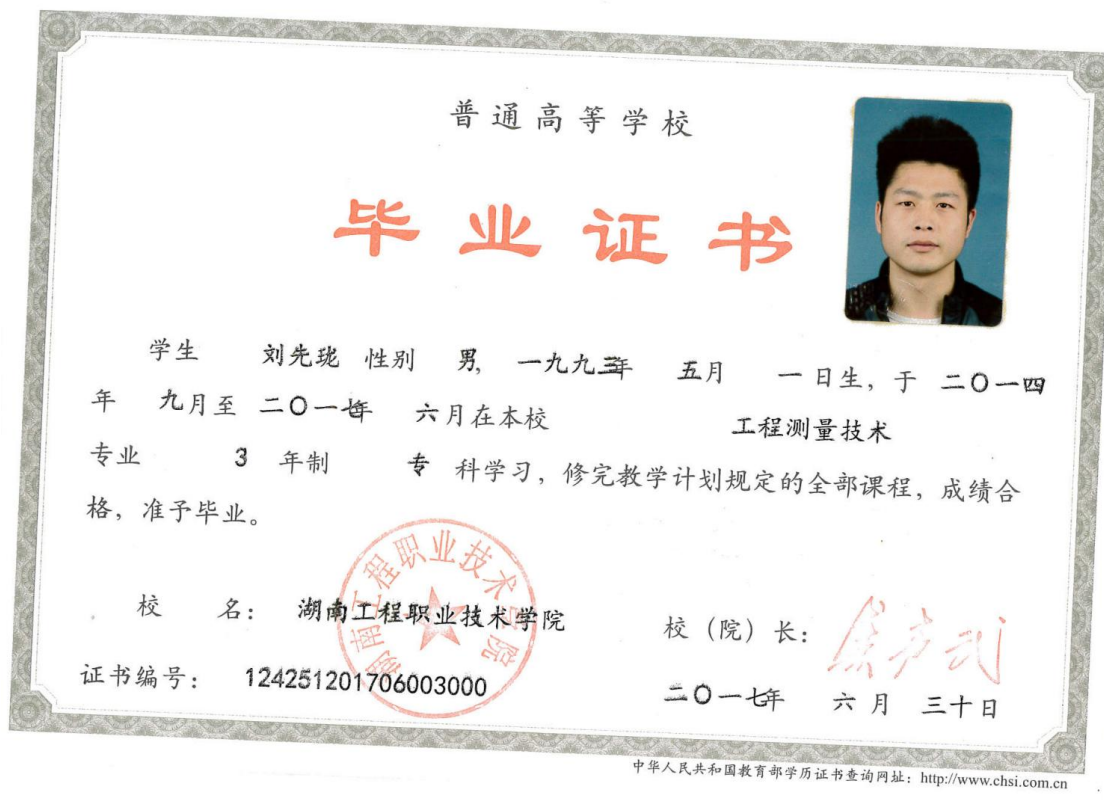 普通高等学校
毕业证书
学生 刘先珑 性别 男, 一九九三年 五月 一日生, 于 二〇一四
年 九月至 二〇一七年 六月在本校 工程测量技术
专业 3 年制 专 科学习, 修完教学计划规定的全部课程, 成绩合
格, 准予毕业。
湖南工程职业技术学院
校 名: 湖南工程职业技术学院
校(院)长:
证书编号: 124251201706003000
二〇一七年 六月 三十日
中华人民共和国教育部学历证书查询网址: http://www.chsi.com.cn